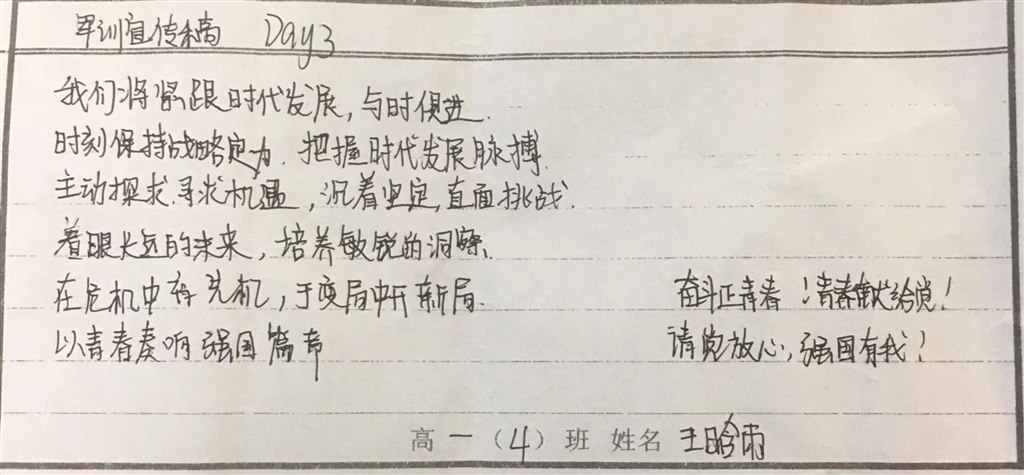 军训宣传稿 Day3
我们将紧跟时代发展,与时俱进.
时刻保持战略定力.把握时代发展脉搏.
主动探求.寻求机遇,沉着坚定,直面挑战.
着眼长远的未来,培养敏锐的洞察.
在危机中存先机,于变局中开新局.
奋斗正青春!青春献给党!
以青春奏响强国篇章
请党放心,强国有我!
高一(4)班 姓名 王晗雨